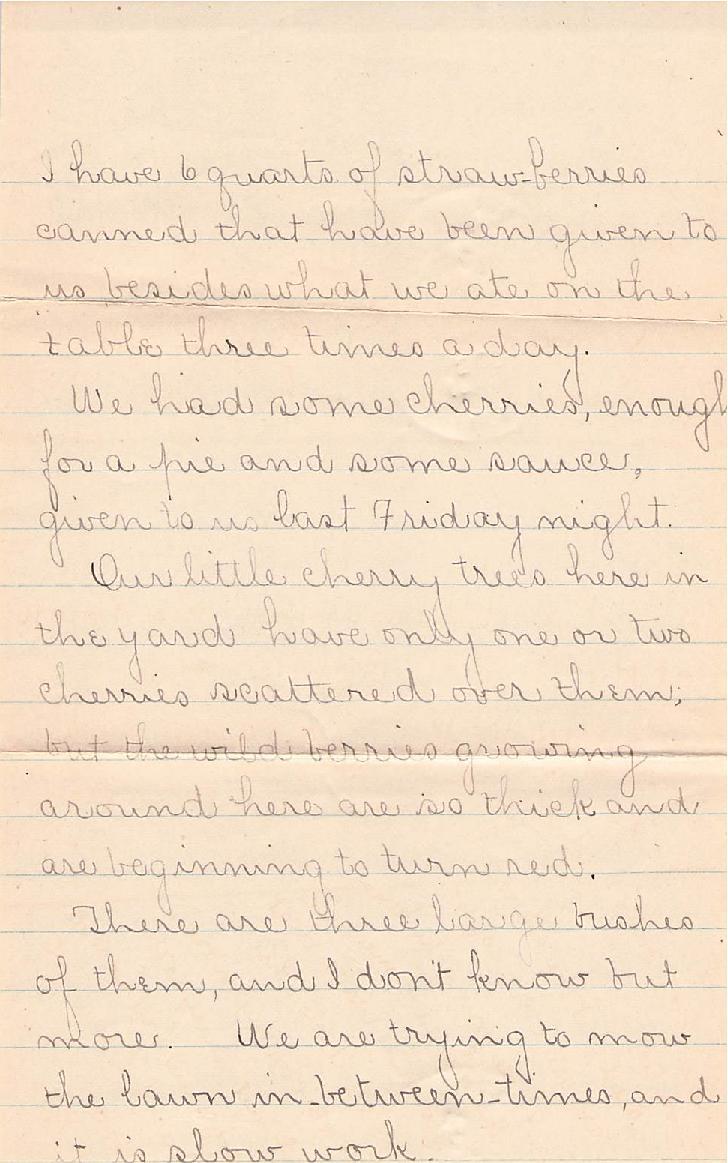 I have 6 quarts of straw-berries
canned that have been given to
us besides what we ate on the
table three times a day.
We had some cherries, enough
for a pie and some sauce,
given to us last Friday night.
Our little cherry trees here in
the yard have only one or two
cherries scattered over them;
but the wild berries growing
around here are so thick and
are beginning to turn red.
There are three large bushes
of them, and I don't know but
more. We are trying to mow
the lawn in-between-times, and
it is slow work.